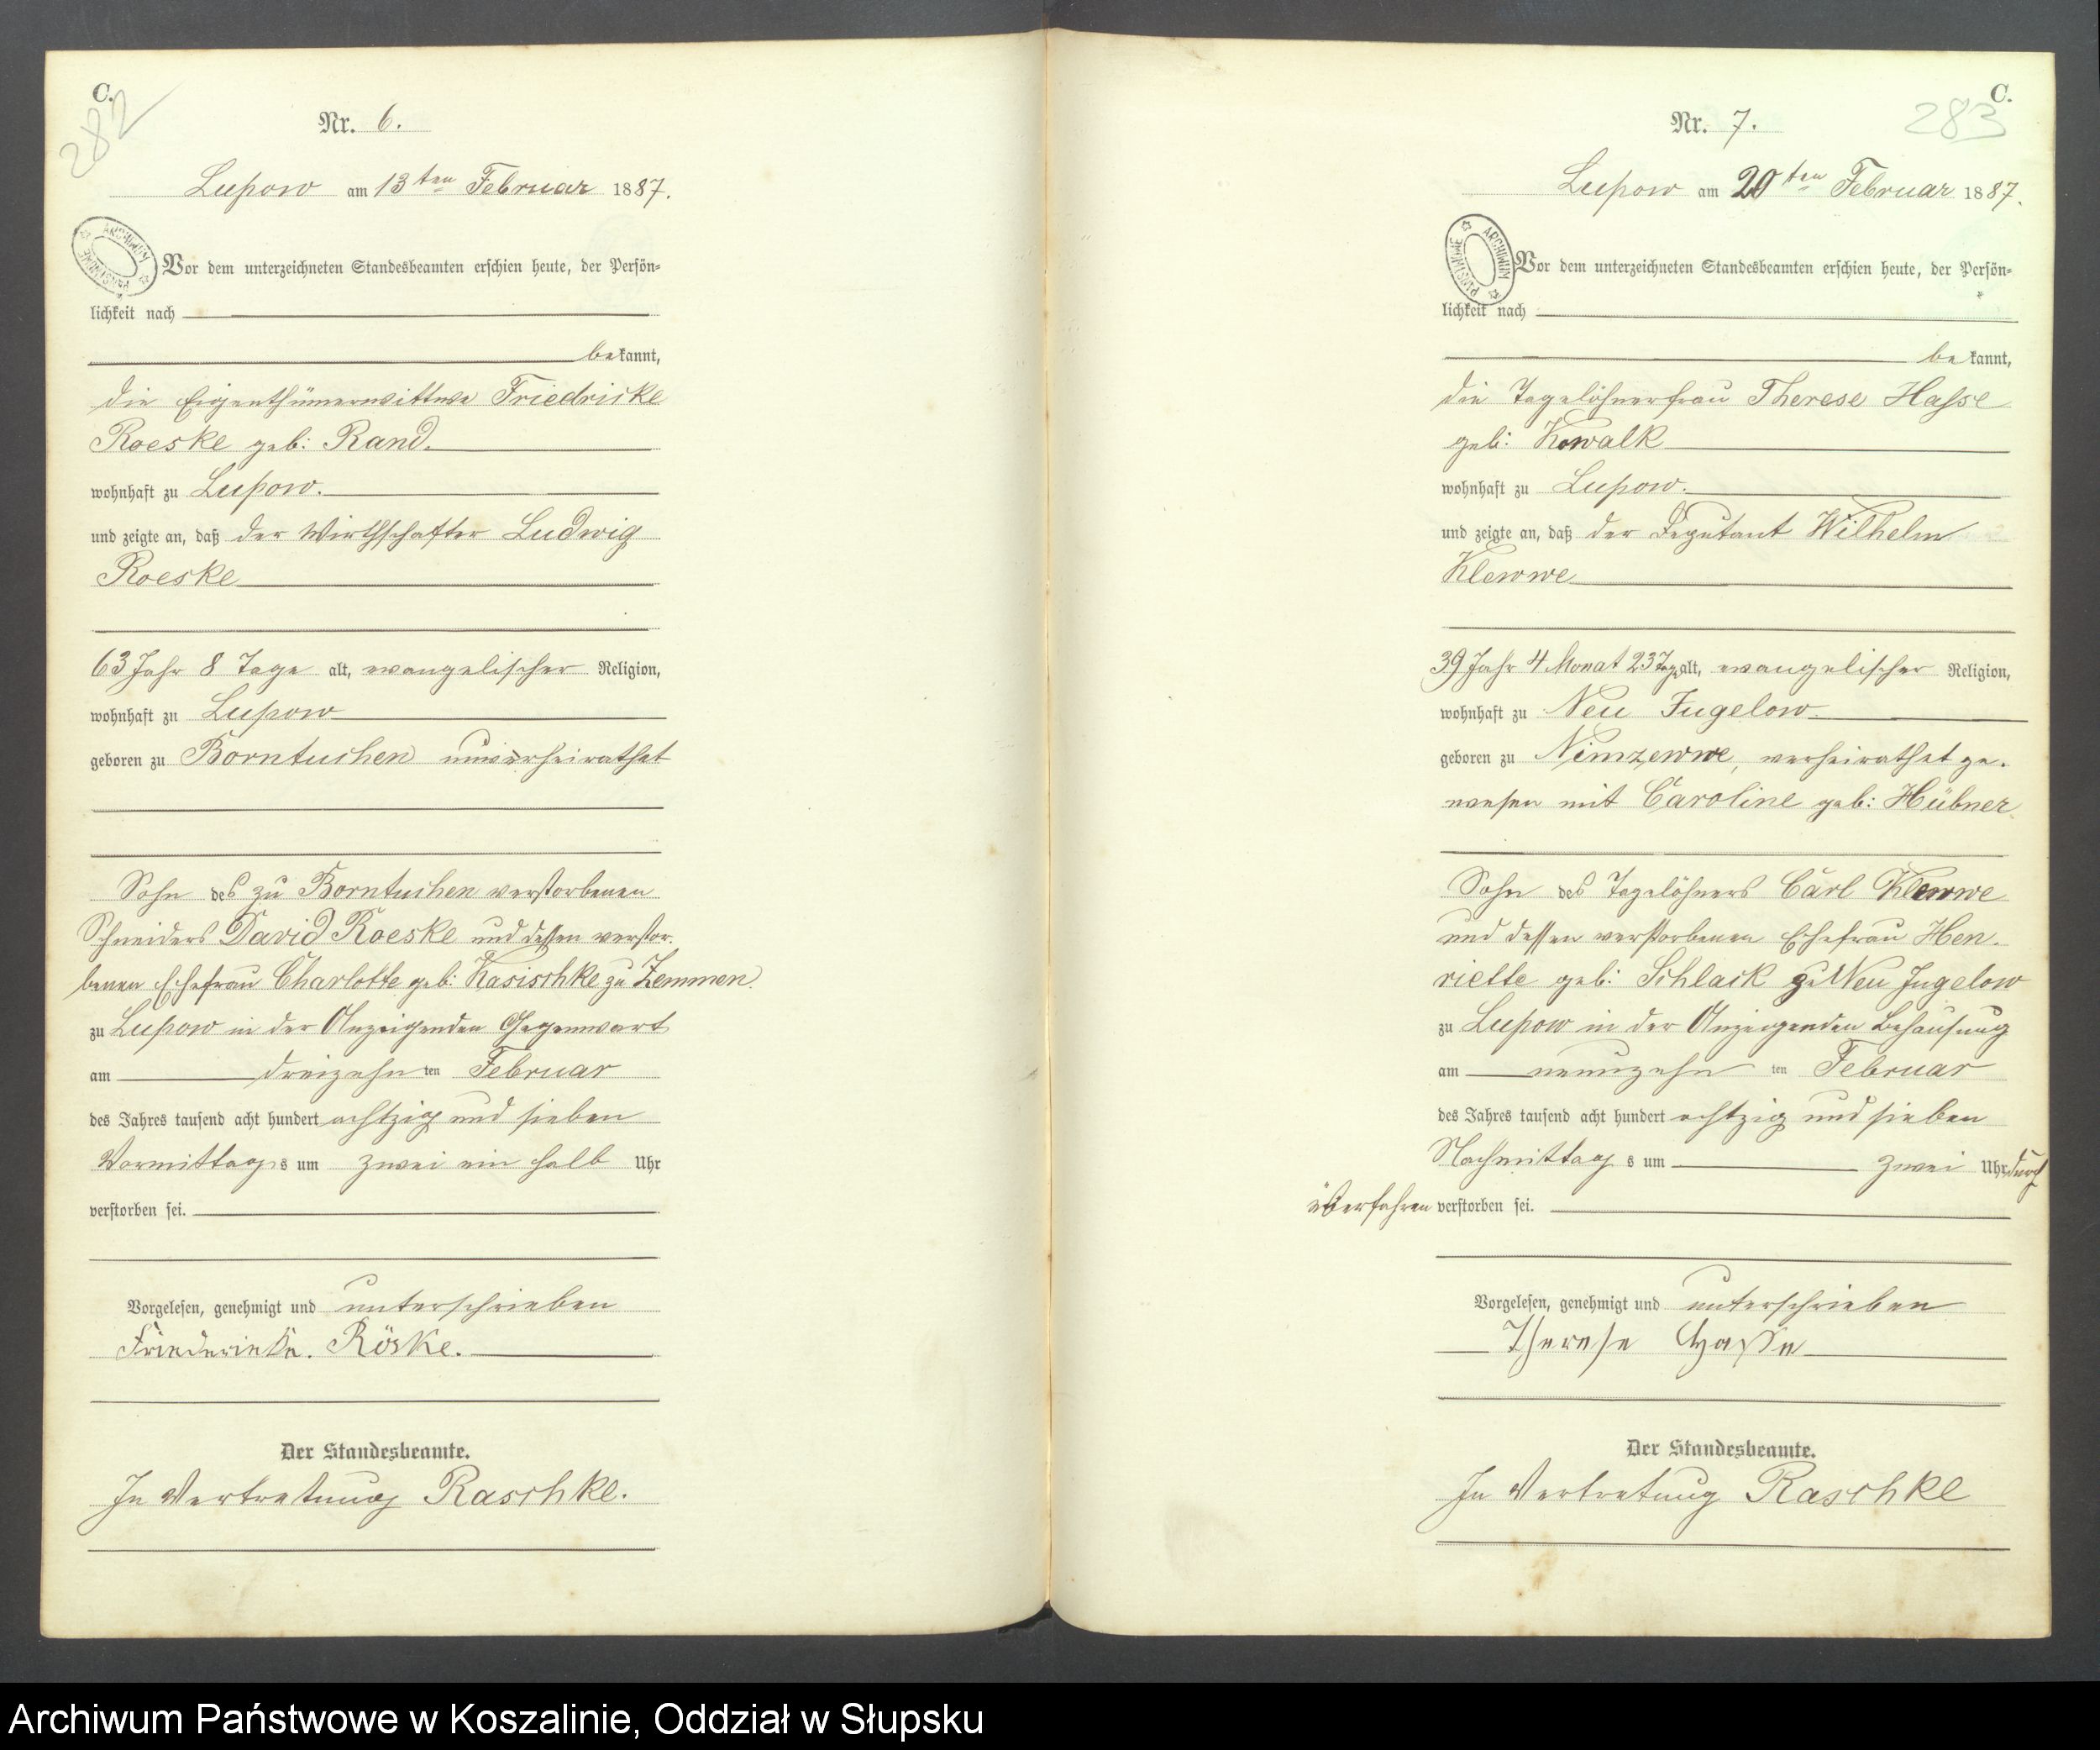 C.
282
Nr. 6.
Lupow am 13ten Februar 1887.
Vor dem unterzeichneten Standesbeamten erschien heute, der Persön-
lichkeit nach
bekannt,
die Eigenthümerwittwe Friedricke
Roeske geb: Rand.
wohnhaft zu Lupow.
und zeigte an, daß der Wirthschafter Ludwig
Roeske
63 Jahr 8 Tage alt, evangelischer Religion,
wohnhaft zu Lupow
geboren zu Borntuchen unverheirathet
Sohn des zu Borntuchen verstorbenen
Schneiders David Roeske und dessen verstor-
benen Ehefrau Charlotte geb: Kasischke zu Zemmen
zu Lupow in der Anzeigenden Gegenwart
am dreizehnten Februar
des Jahres tausend acht hundert achtzig und sieben
Vormittags um zwei ein halb Uhr
verstorben sei.
Vorgelesen, genehmigt und unterschrieben
Friederieke. Röske.
Der Standesbeamte.
In Vertretung Raschke.
C.
283
Nr. 7.
Lupow am 20ten Februar 1887.
Vor dem unterzeichneten Standesbeamten erschien heute, der Persön-
lichkeit nach
bekannt,
die Tagelöhnerfrau Therese Hasse
geb: Kowalk
wohnhaft zu Lupow.
und zeigte an, daß der Deputant Wilhelm
Klewwe
39 Jahr 4 Monat 23 Tage alt, evangelischer Religion,
wohnhaft zu Neu Jugelow.
geboren zu Nimzewwe, verheirathet ge-
wesen mit Caroline geb: Hübner
Sohn des Tagelöhners Carl Klewwe
und dessen verstorbenen Ehefrau Hen-
riette geb: Schlack zu Neu Jugelow
zu Lupow in der Anzeigenden Behausung
am neunzehnten Februar
des Jahres tausend acht hundert achtzig und sieben
Nachmittags um zwei Uhr durch
überfahren verstorben sei.
Vorgelesen, genehmigt und unterschrieben
Therese Hasse
Der Standesbeamte.
In Vertretung Raschke
Archiwum Państwowe w Koszalinie, Oddział w Słupsku